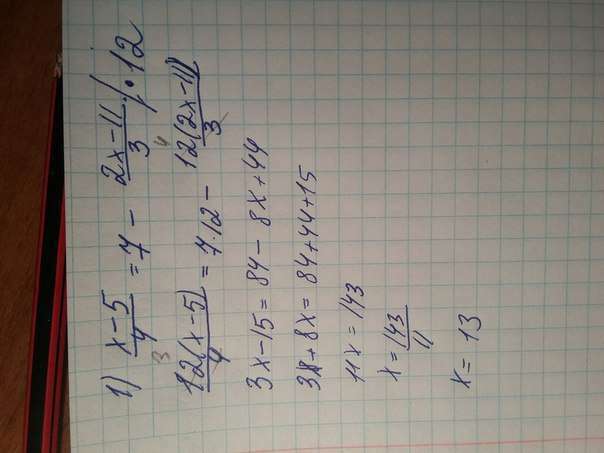 1) x-5/4 = 7 - 2x-11/3 | · 12
3 4
12(x-5)/4 = 7·12 - 12(2x-11)/3
3x-15 = 84 - 8x+44
3x+8x = 84+44+15
11x = 143
x = 143/11
x = 13